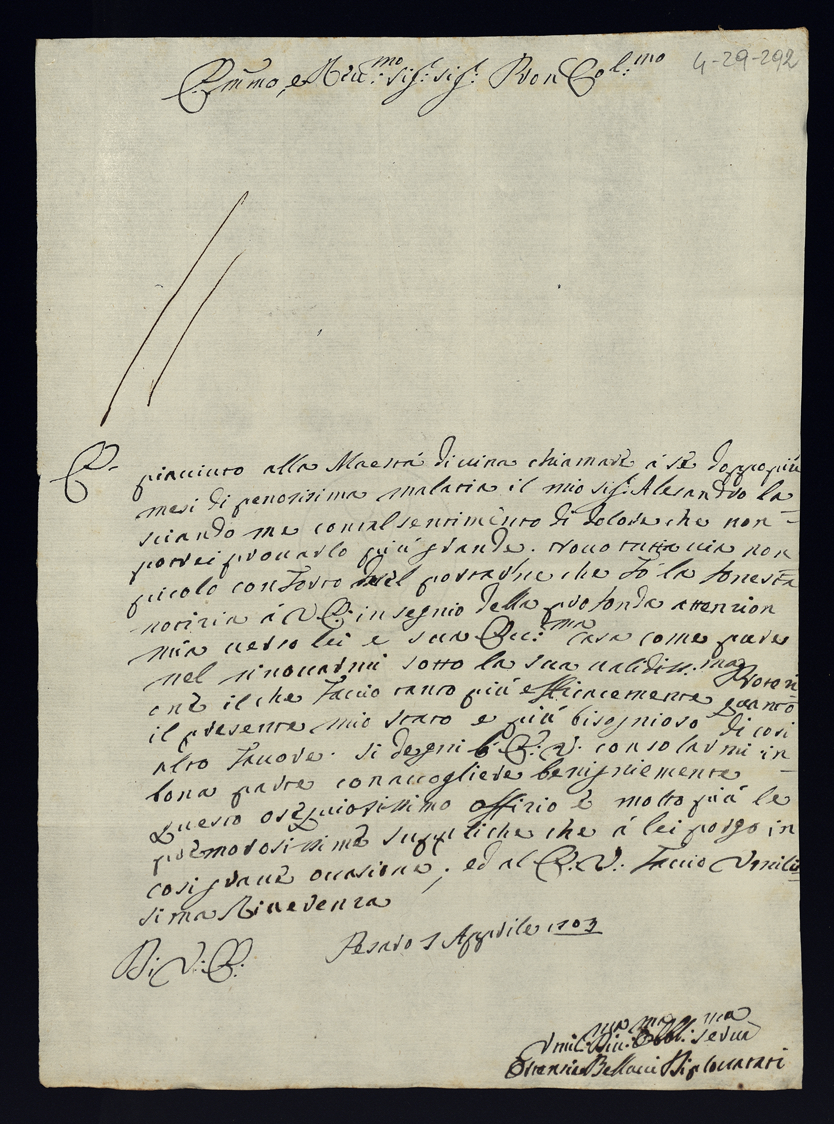 Em̃mo, e Reu:mo sig:r sig:r Pron Col:mo
4-29-292
È piaciuto alla Maestà diuina chiamare à sè doppo più
mesi di penosissima malatia il mio sig:r Alesandro la
sciando me con tal sentimento di dolore che non
potrei prouarlo più grande. trouo tutta uia non
picolo conforto nel portarne che fò la funesta
notizia à V.E. in segnio della profonda attenzion
mia uerso lei e sua Ecc:ma Casa come pure
nel rinouarmi sotto la sua ualidiss:ma Protezi
one il che faccio tanto più efficacemente quanto
il presente mio stato e più bisognioso di cosi
alto fauore. si degni l'E.V. consolarmi in
bona parte con accogliere benigniemente
questo osequiosissimo offizio è molto più le
premorosissime suppliche che à lei porgo in
cosi graue ocasione; ed al E.V. faccio Vmilis
sima Riuerenza
Di V:E: Pesaro 1 Apprile 1703
Vmil:ma Diu:ma Obbl:ma serua
Ortensia Bellucci Diplouatati